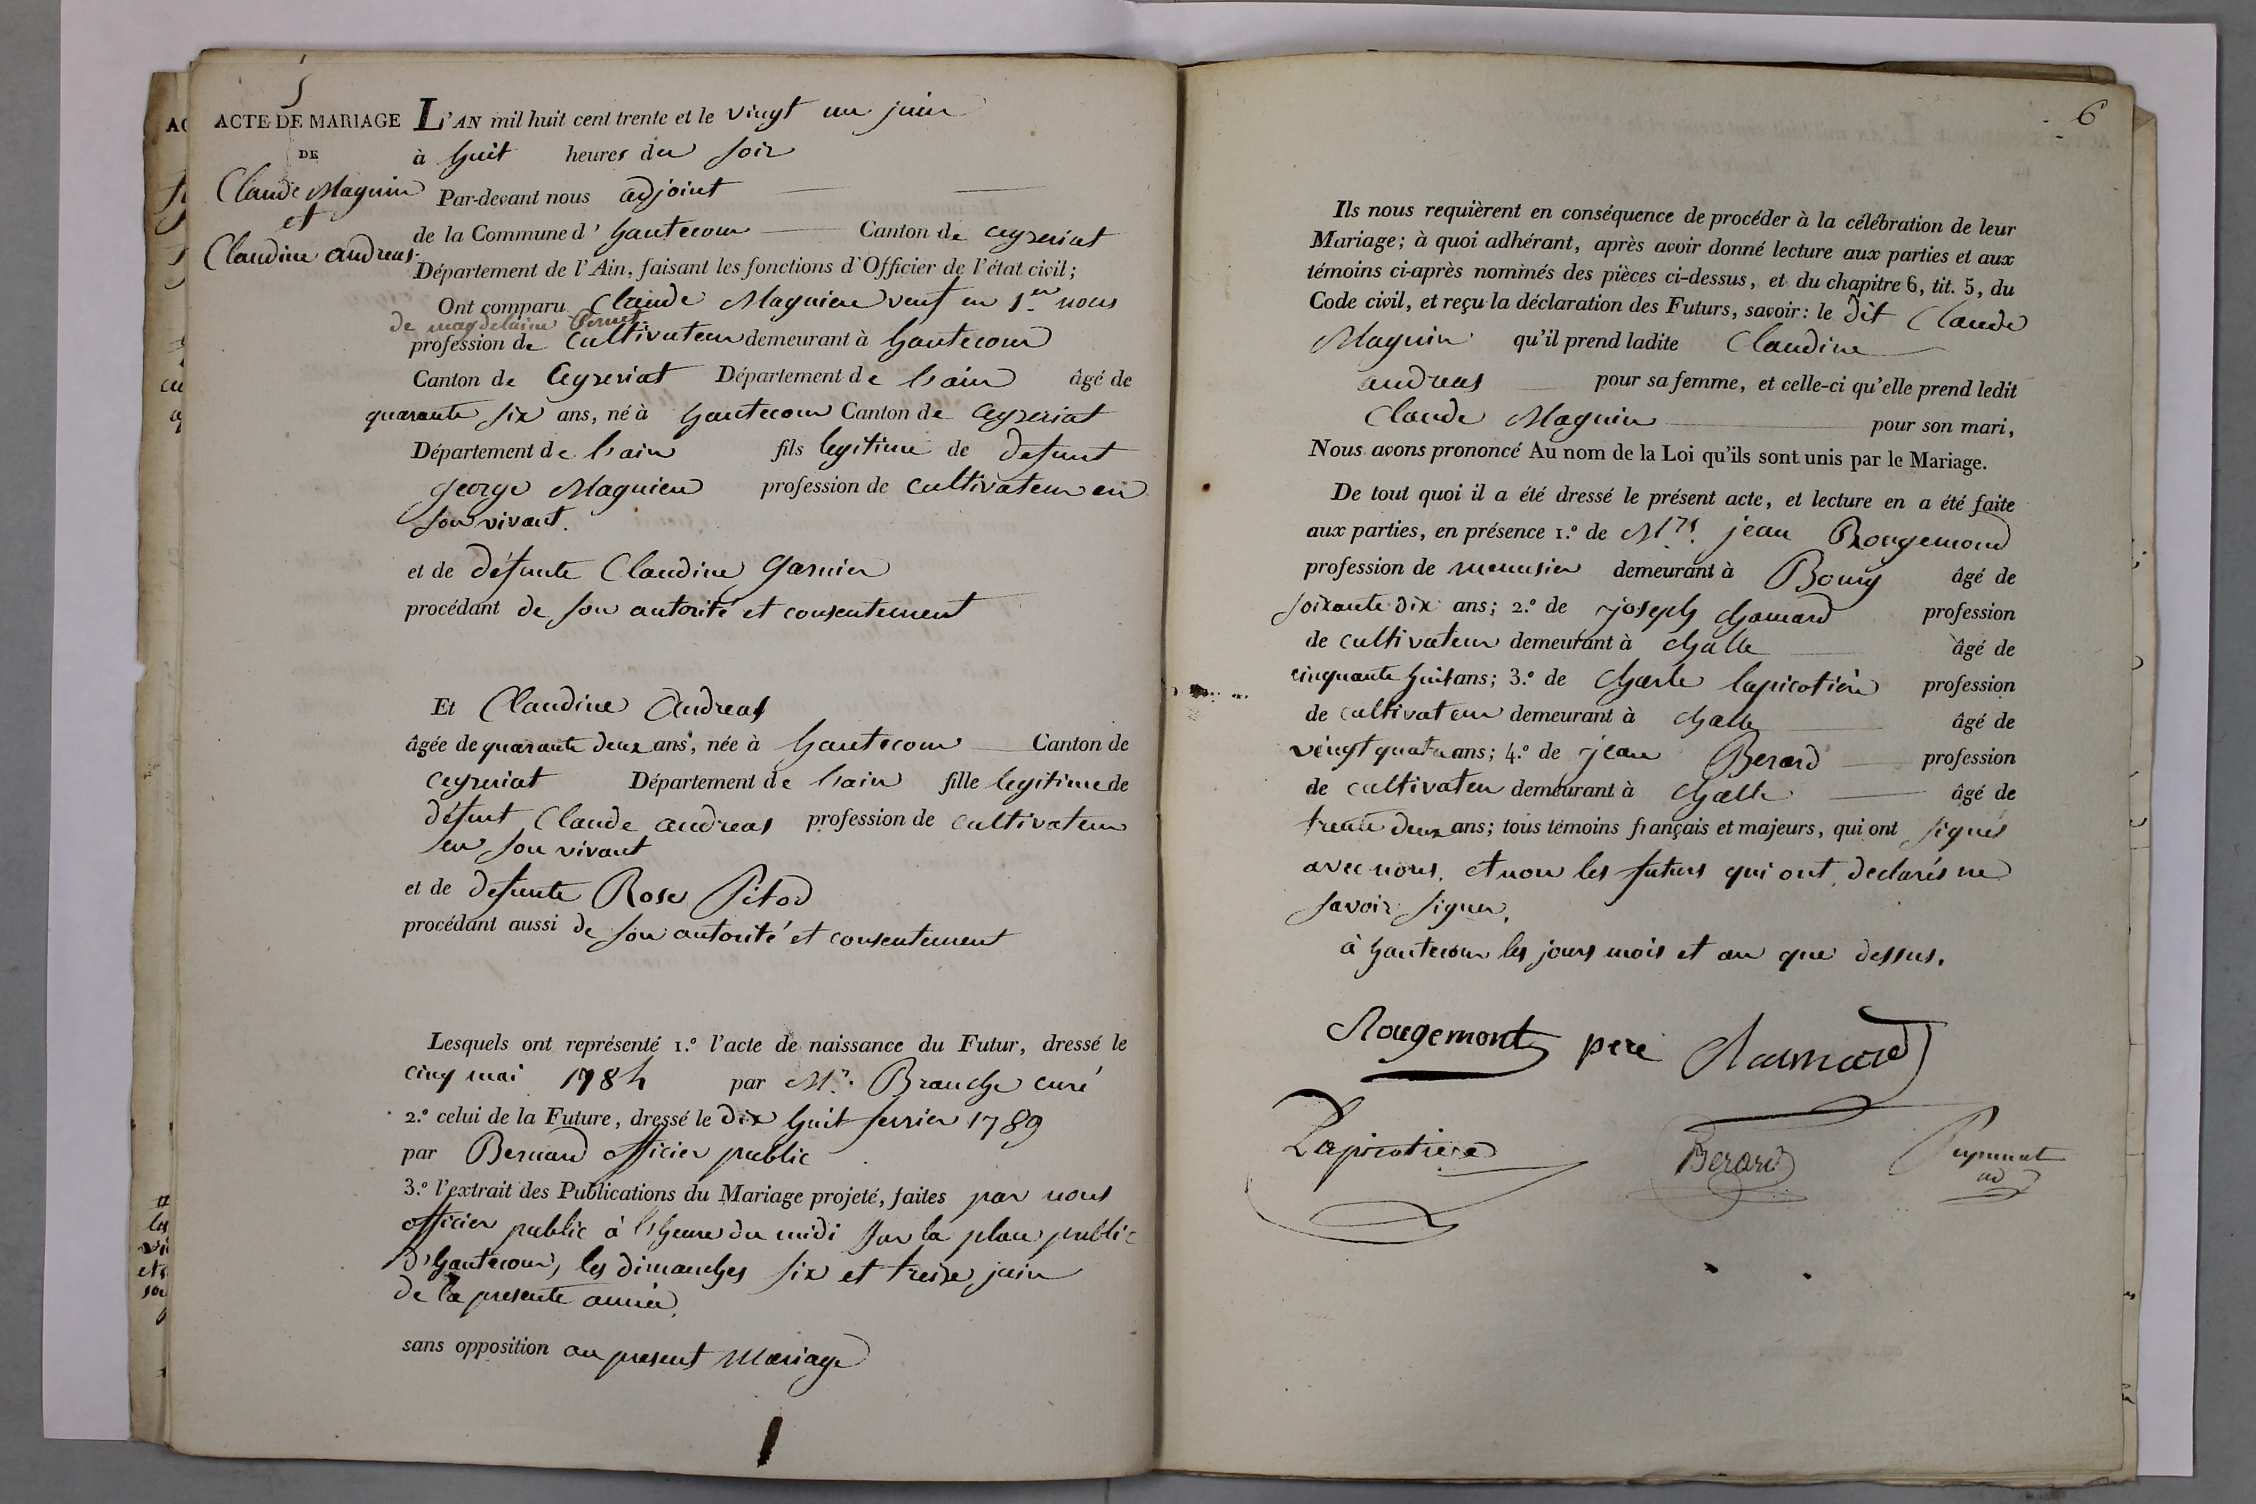 5
ACTE DE MARIAGE
DE
Claude Maguin
et
Claudine andreas.
L'AN mil huit cent trente et le vingt un juin
à huit heures du soir
Par-devant nous adjoint
de la Commune d' hautecour Canton de ceyzeriat
Département de l'Ain, faisant les fonctions d'Officier de l'état civil;
Ont comparu Claude Maguien veuf en 1er nous
de magdelaine
profession de cultivateur demeurant à hautecour
Canton de Ceyzeriat Département de l'ain âgé de
quarante six ans, né à hautecour Canton de Ceyzeriat
Département de l'ain fils legitime de defunt
george Maguien profession de cultivateur en
son vivant.
et de défunte Claudine Garnier
procédant de son autorité et consentement
Et Claudine Andreas
âgée de quarante deux ans, née à hautecour Canton de
ceyzeriat Département de l'ain fille legitime de
défunt Claude andreas profession de cultivateur
en son vivant
et de defunte Rose Pitod
procédant aussi de son autorité et consentement
Lesquels ont représenté 1.º l'acte de naissance du Futur, dressé le
cinq mai 1784 par Mr. Branche curé
2.º celui de la Future, dressé le dix huit fevrier 1789
par Bernard officier public
3.º l'extrait des Publications du Mariage projeté, faites par nous
officier public à l'heure du midi sur la place public
d'hautecour, les dimanches six et treize juin
de la presente année.
sans opposition au present Mariage
6
Ils nous requièrent en conséquence de procéder à la célébration de leur
Mariage; à quoi adhérant, après avoir donné lecture aux parties et aux
témoins ci-après nommés des pièces ci-dessus, et du chapitre 6, tit. 5, du
Code civil, et reçu la déclaration des Futurs, savoir: le dit Claude
Maguin qu'il prend ladite Claudine
andreas pour sa femme, et celle-ci qu'elle prend ledit
Claude Maguin pour son mari,
Nous avons prononcé Au nom de la Loi qu'ils sont unis par le Mariage.
De tout quoi il a été dressé le présent acte, et lecture en a été faite
aux parties, en présence 1.º de Mrs. jean Rougemond
profession de menusier demeurant à Bourg âgé de
soixante dix ans; 2.º de joseph chamard profession
de cultivateur demeurant à challe âgé de
cinquante huit ans; 3.º de charle lapicotière profession
de cultivateur demeurant à challe âgé de
vingt quatre ans; 4.º de jean Berard profession
de cultivateur demeurant à challe âgé de
trente deux ans; tous témoins français et majeurs, qui ont signés
avec nous, et non les futurs qui ont declarés ne
savoir signer.
à hautecour les jours mois et an que dessus.
Rougemont pere
Lapicotiere
Berard
ad